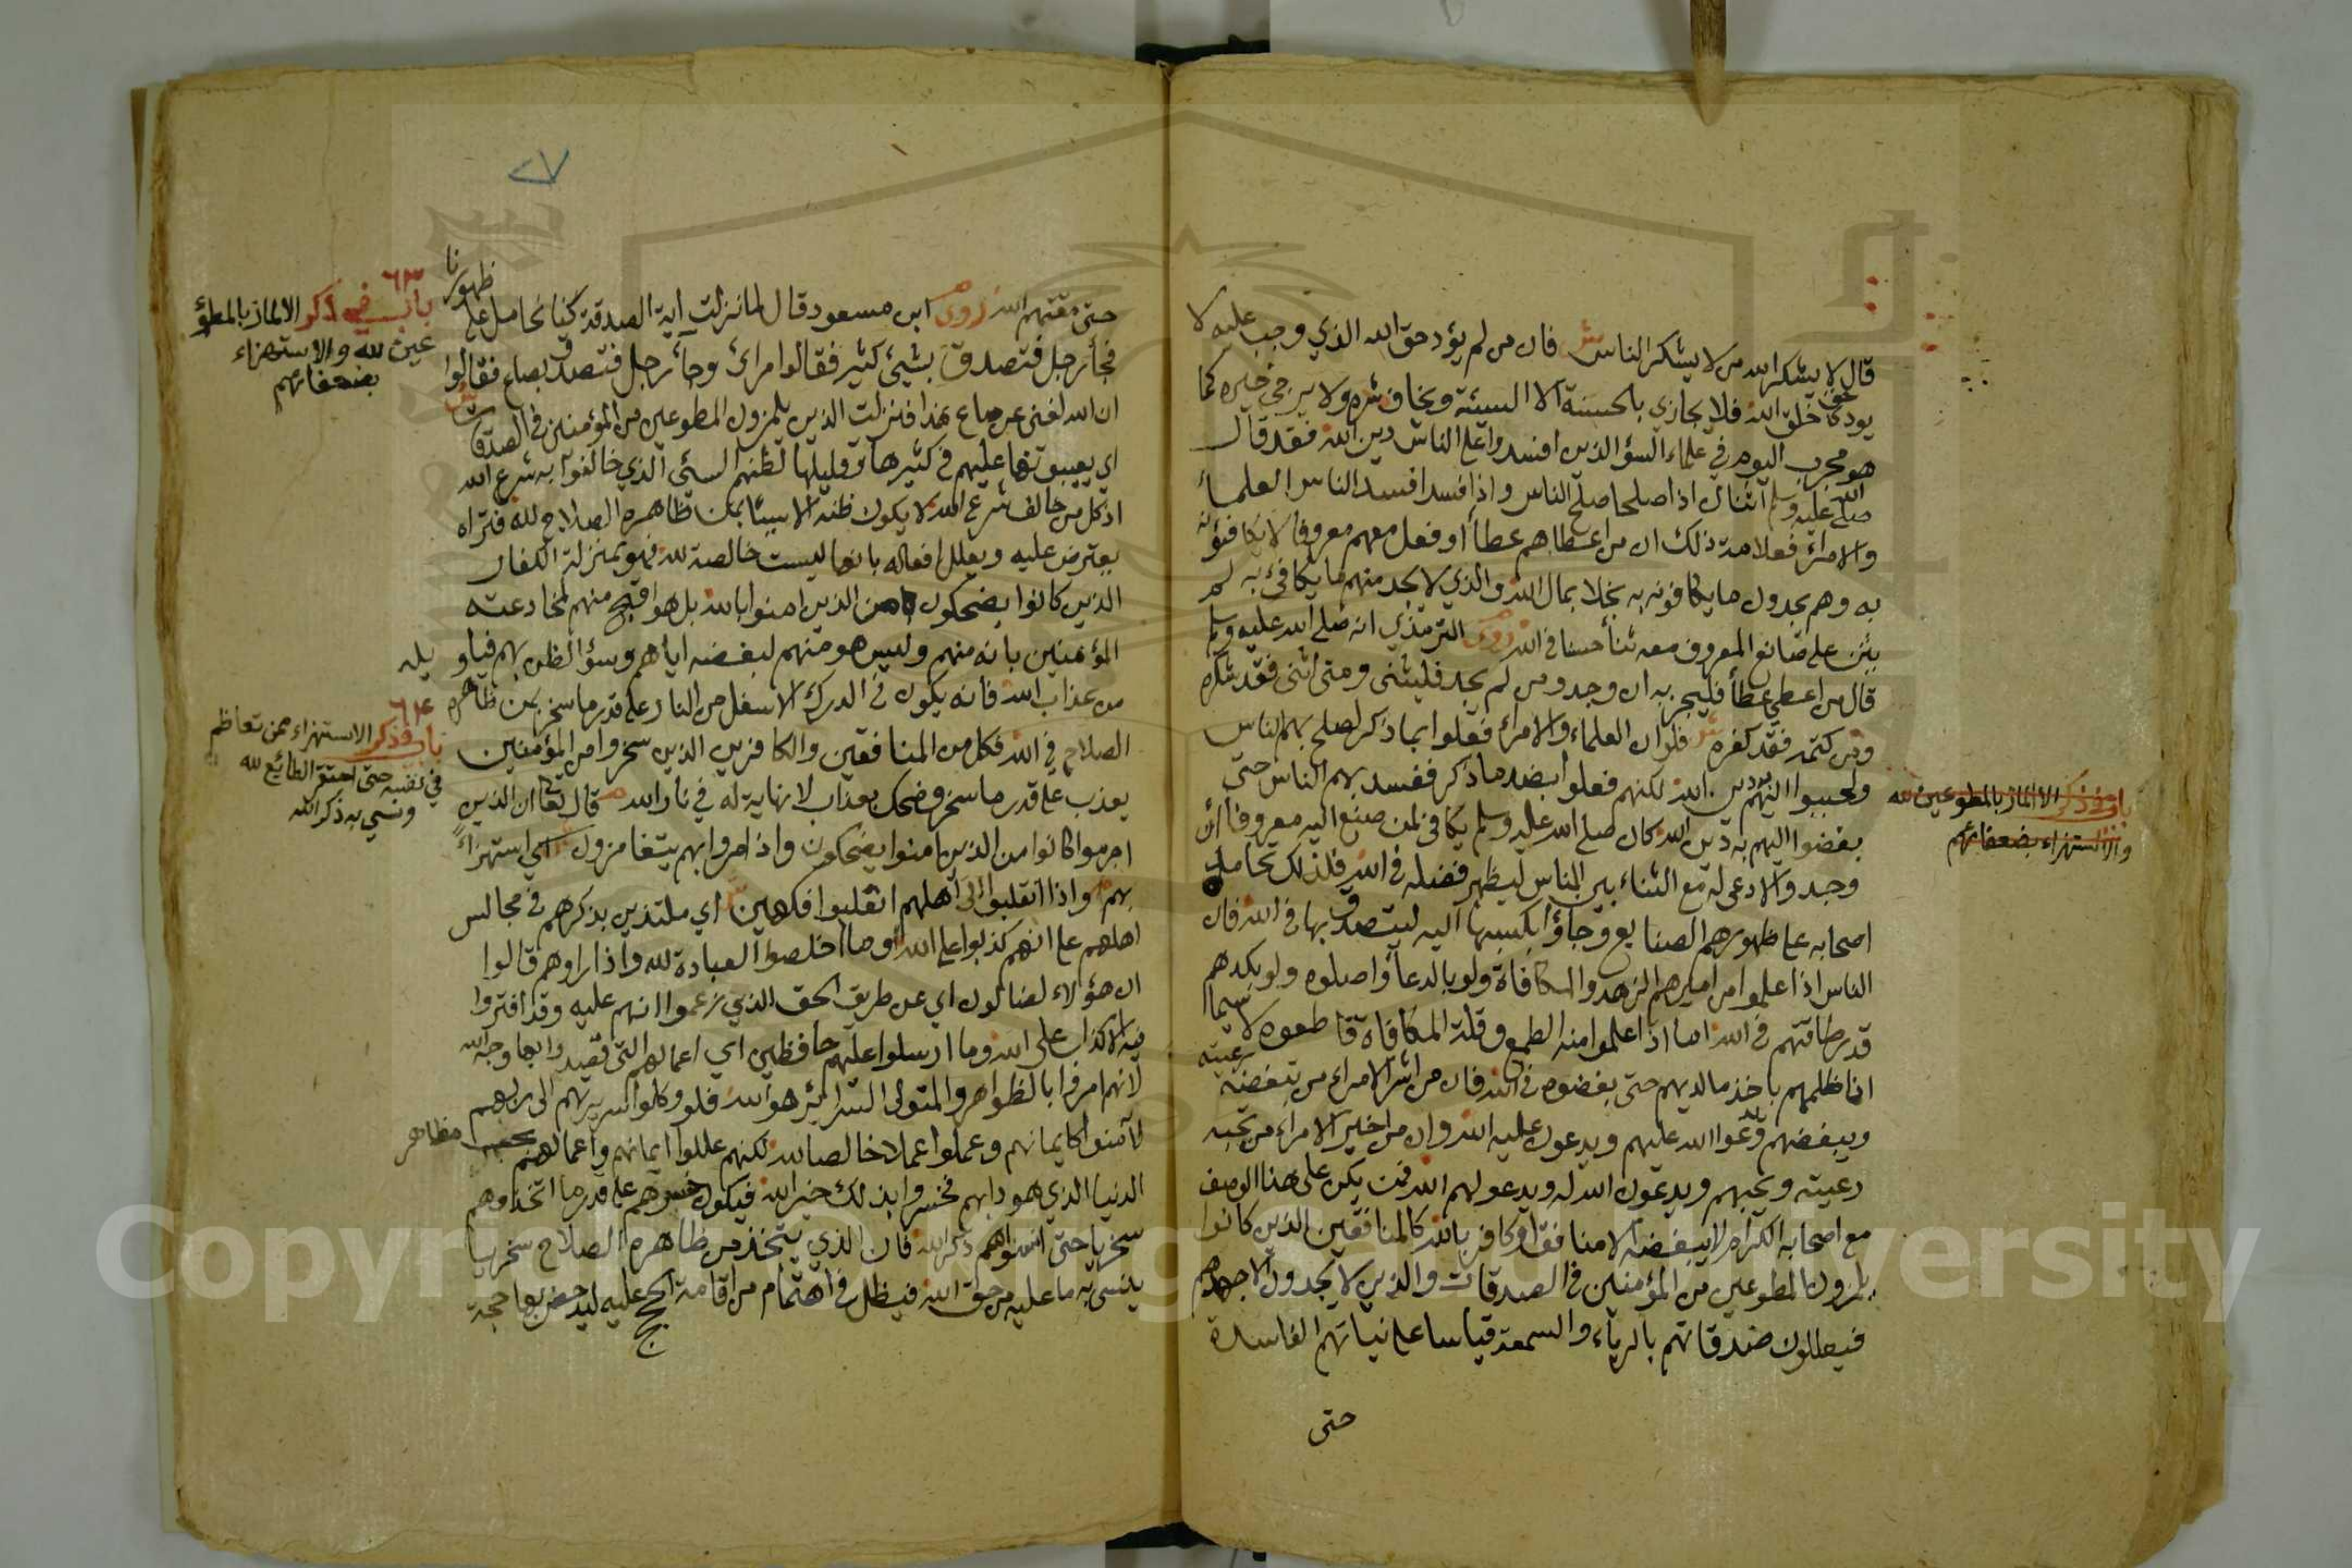 قال لا يشكر الله من لا يشكر الناس ش فان من لم يؤد حق الله الذي وجب عليه لا
يودى حق خلق الله فلا يجازي بالحسنة الا السيئة ويخاف شره ولا يرجى خيره كما
هو مجرب اليوم في علماء السؤ الذين افسدوا على الناس دين الله فقد قال
صلى الله عليه وسلم اثنان اذا صلحا صلح الناس واذا فسدا فسد الناس العلماء
والامراء فعلامة ذلك ان من اعطاهم عطاأ او فعل معهم معروفا لا يكافئونه
به وهم يجدون ما يكافونه به بخلا بمال الله والذي لا يجد منهم ما يكافئ به لم
يثن على صانع المعروف معه ثناأ حسنا في الله روى الترمذي انه صلى الله عليه وسلم
قال من اعطي عطاأ فليجز به ان وجد ومن لم يجد فليثنى ومتى اثنى فقد شكره
ومن كتمه فقد كفره ش فلو ان العلماء والامراء فعلوا بما ذكر لصلح بهم الناس
ولحببوا اليهم دين الله لكنهم فعلوا بضد ما ذكر ففسد بهم الناس حتى
بغضوا اليهم به دين الله كان صلى الله عليه وسلم يكافئ لمن صنع اليه معروفا ان
وجد والا دعى له مع الثناء بين الناس ليظهر فضله في الله فلذلك تحامل
اصحابه على ظهورهم الصنايع وجاؤا بكسبها اليه ليتصدق بها في الله فان
الناس اذا علموا من اميرهم الزهد والمكافاة ولو بالدعاأ واصلوه ولو بكدهم
قدر طاقتهم في الله اما اذا علموا منه الطمع وقلة المكافاة قاطعوه لا سيما
اذا ظلمهم باخذ مالديهم حتى بغضوه في الله فان من اشر الامراء من تبغضه رعيته
ويبغضهم ويدعوا الله عليهم ويدعون عليه الله وان من اخير الامراء من تحبه
رعيته ويحبهم ويدعون الله له ويدعو لهم الله فمن يكن على هذا الوصف
مع اصحابه الكرام لا يبغضه الا منافق او كافر بالله كالمنافقين الذين كانوا
يلمزون المطوعين من المؤمنين في الصدقات والذين لا يجدون الا جهدهم
فيعللون صدقاتهم بالرياء والسمعة قياسا على نياتهم الفاسدة
حتى
باب في ذكر الالماز بالمطوعين لله
والاستهزاء بضعفائهم
٢٧
حتى مقتهم الله روى ابن مسعود قال لما نزلت آية الصدقة كنا نحامل على ظهورنا
فجأ رجل فتصدق بشيئ كثير فقالوا مرائ وجاأ رجل فتصدق بصاع فقالوا
ان الله لغني عن صاع هذا فنزلت الذين يلمزون المطوعين من المؤمنين في الصدقات ش
اي يعيبونها عليهم في كثيرها وقليلها لظنهم السئي الذي خالفوا به شرع الله
اذ كل من خالف شرع الله لا يكون ظنه الا سيئا بمن ظاهره الصلاح لله فتراه
يعترض عليه ويعلل افعاله بانها ليست خالصة لله فهو بمنزلة الكفار
الذين كانوا يضحكون من الذين امنوا بالله بل هو اقبح منهم لمخادعته
المؤمنين بانه منهم وليس هو منهم لبغضه اياهم وسؤ الظن بهم فياويله
من عذاب الله فانه يكون في الدرك الاسفل من النار على قدر ما سخر بمن ظاهره
الصلاح في الله فكل من المنافقين والكافرين الذين سخروا من المؤمنين
يعذب على قدر ما سخر وضحك بعذاب لا نهاية له في نار الله قال تعا ان الذين
اجرموا كانوا من الذين امنوا يضحكون واذا مروا بهم يتغامزون اي استهزاءً
بهم واذا انقلبوا الى اهلهم انقلبوا فكهين اي ملتذين بذكرهم في مجالس
اهلهم على انهم كذبوا على الله وما اخلصوا العبادة لله واذا راوهم قالوا
ان هؤلاء لضالون اي عن طريق الحق الذي زعموا انهم عليه وقد افتروا
فيه الاكذاب على الله وما ارسلوا عليهم حافظين اي اعمالهم التي قصدوا بها وجه الله
لانهم امروا بالظواهر والمتولى السرائر هو الله فلو وكلوا سريرتهم الى ربهم
لآمنوا كايمانهم وعملوا عملا خالصا لله لكنهم عللوا ايمانهم واعمالهم بمظاهر
الدنيا الذي هو دابهم فخسروا بذلك خير الله فيكون خسرهم على قدر ما اتخذوهم
سخريا حتى انسوهم ذكر الله فان الذي يتخذ من ظاهره الصلاح سخريا
ينسى به ما عليه من حق الله فيظل في اهتمام من اقامة الحجج عليه ليدحض بها حجة
٦٣
باب في ذكر الالماز بالمطو
عين لله والاستهزاء
بضعفائهم
٦٤
باب في ذكر الاستهزاء ممن تعاظم
في نفسه حتى احتقر الطائع لله
ونسي به ذكر الله
Copyright © King Saud University